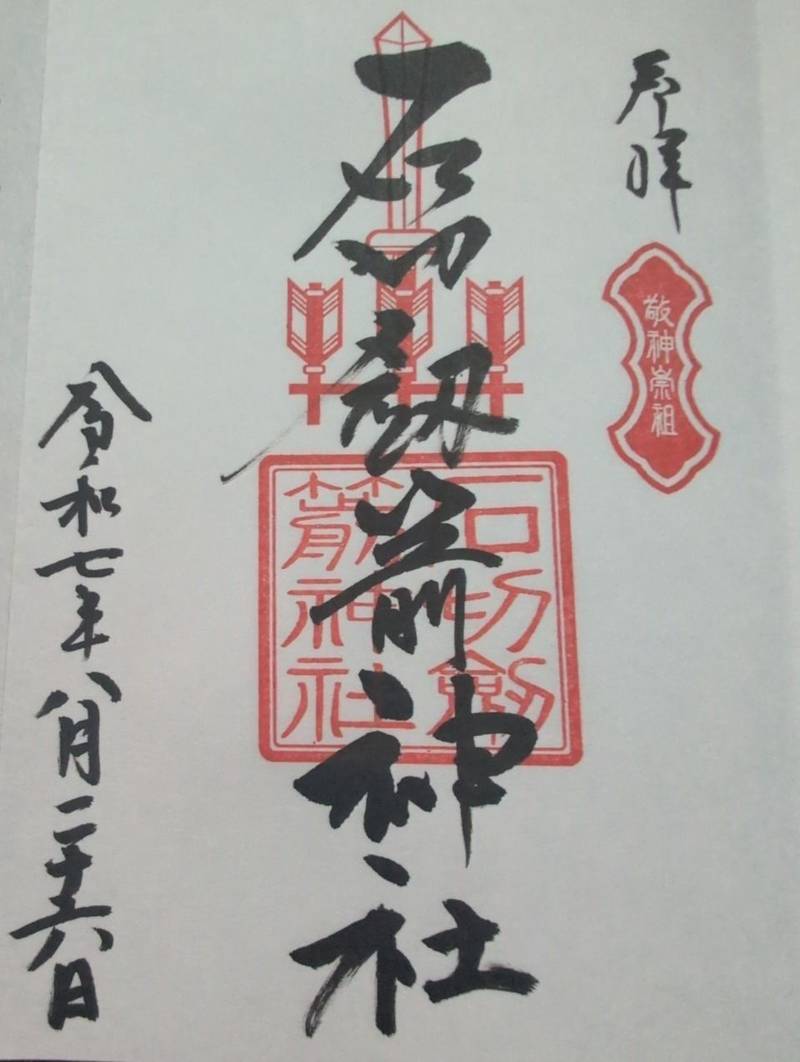 奉拝
敬神崇祖
石切劔箭神社
石切劔
箭神社
令和七年八月二十六日